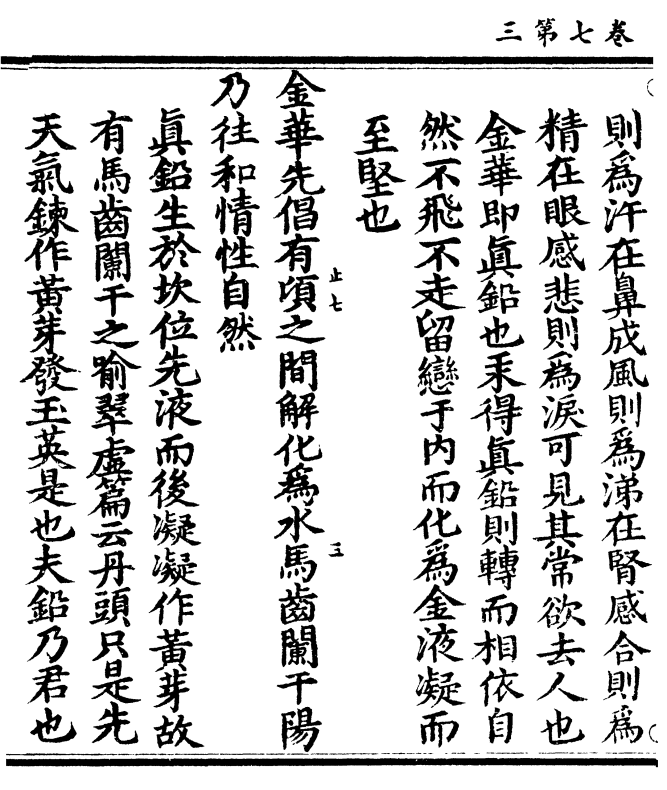 卷七第三
則為汗在鼻成風則為涕在腎感合則為
精在眼感悲則為淚可見其常欲去人也
金華即眞鉛也汞得眞鉛則轉而相依自
然不飛不走留戀于内而化為金液凝而
至堅也
金華先倡有頃之間解化為水馬齒闌干陽
止七
三
乃往和情性自然
眞鉛生於坎位先液而後凝凝作黄芽故
有馬齒闌干之喻翠虛篇云丹頭只是先
天氣鍊作黄芽發玉英是也夫鉛乃君也